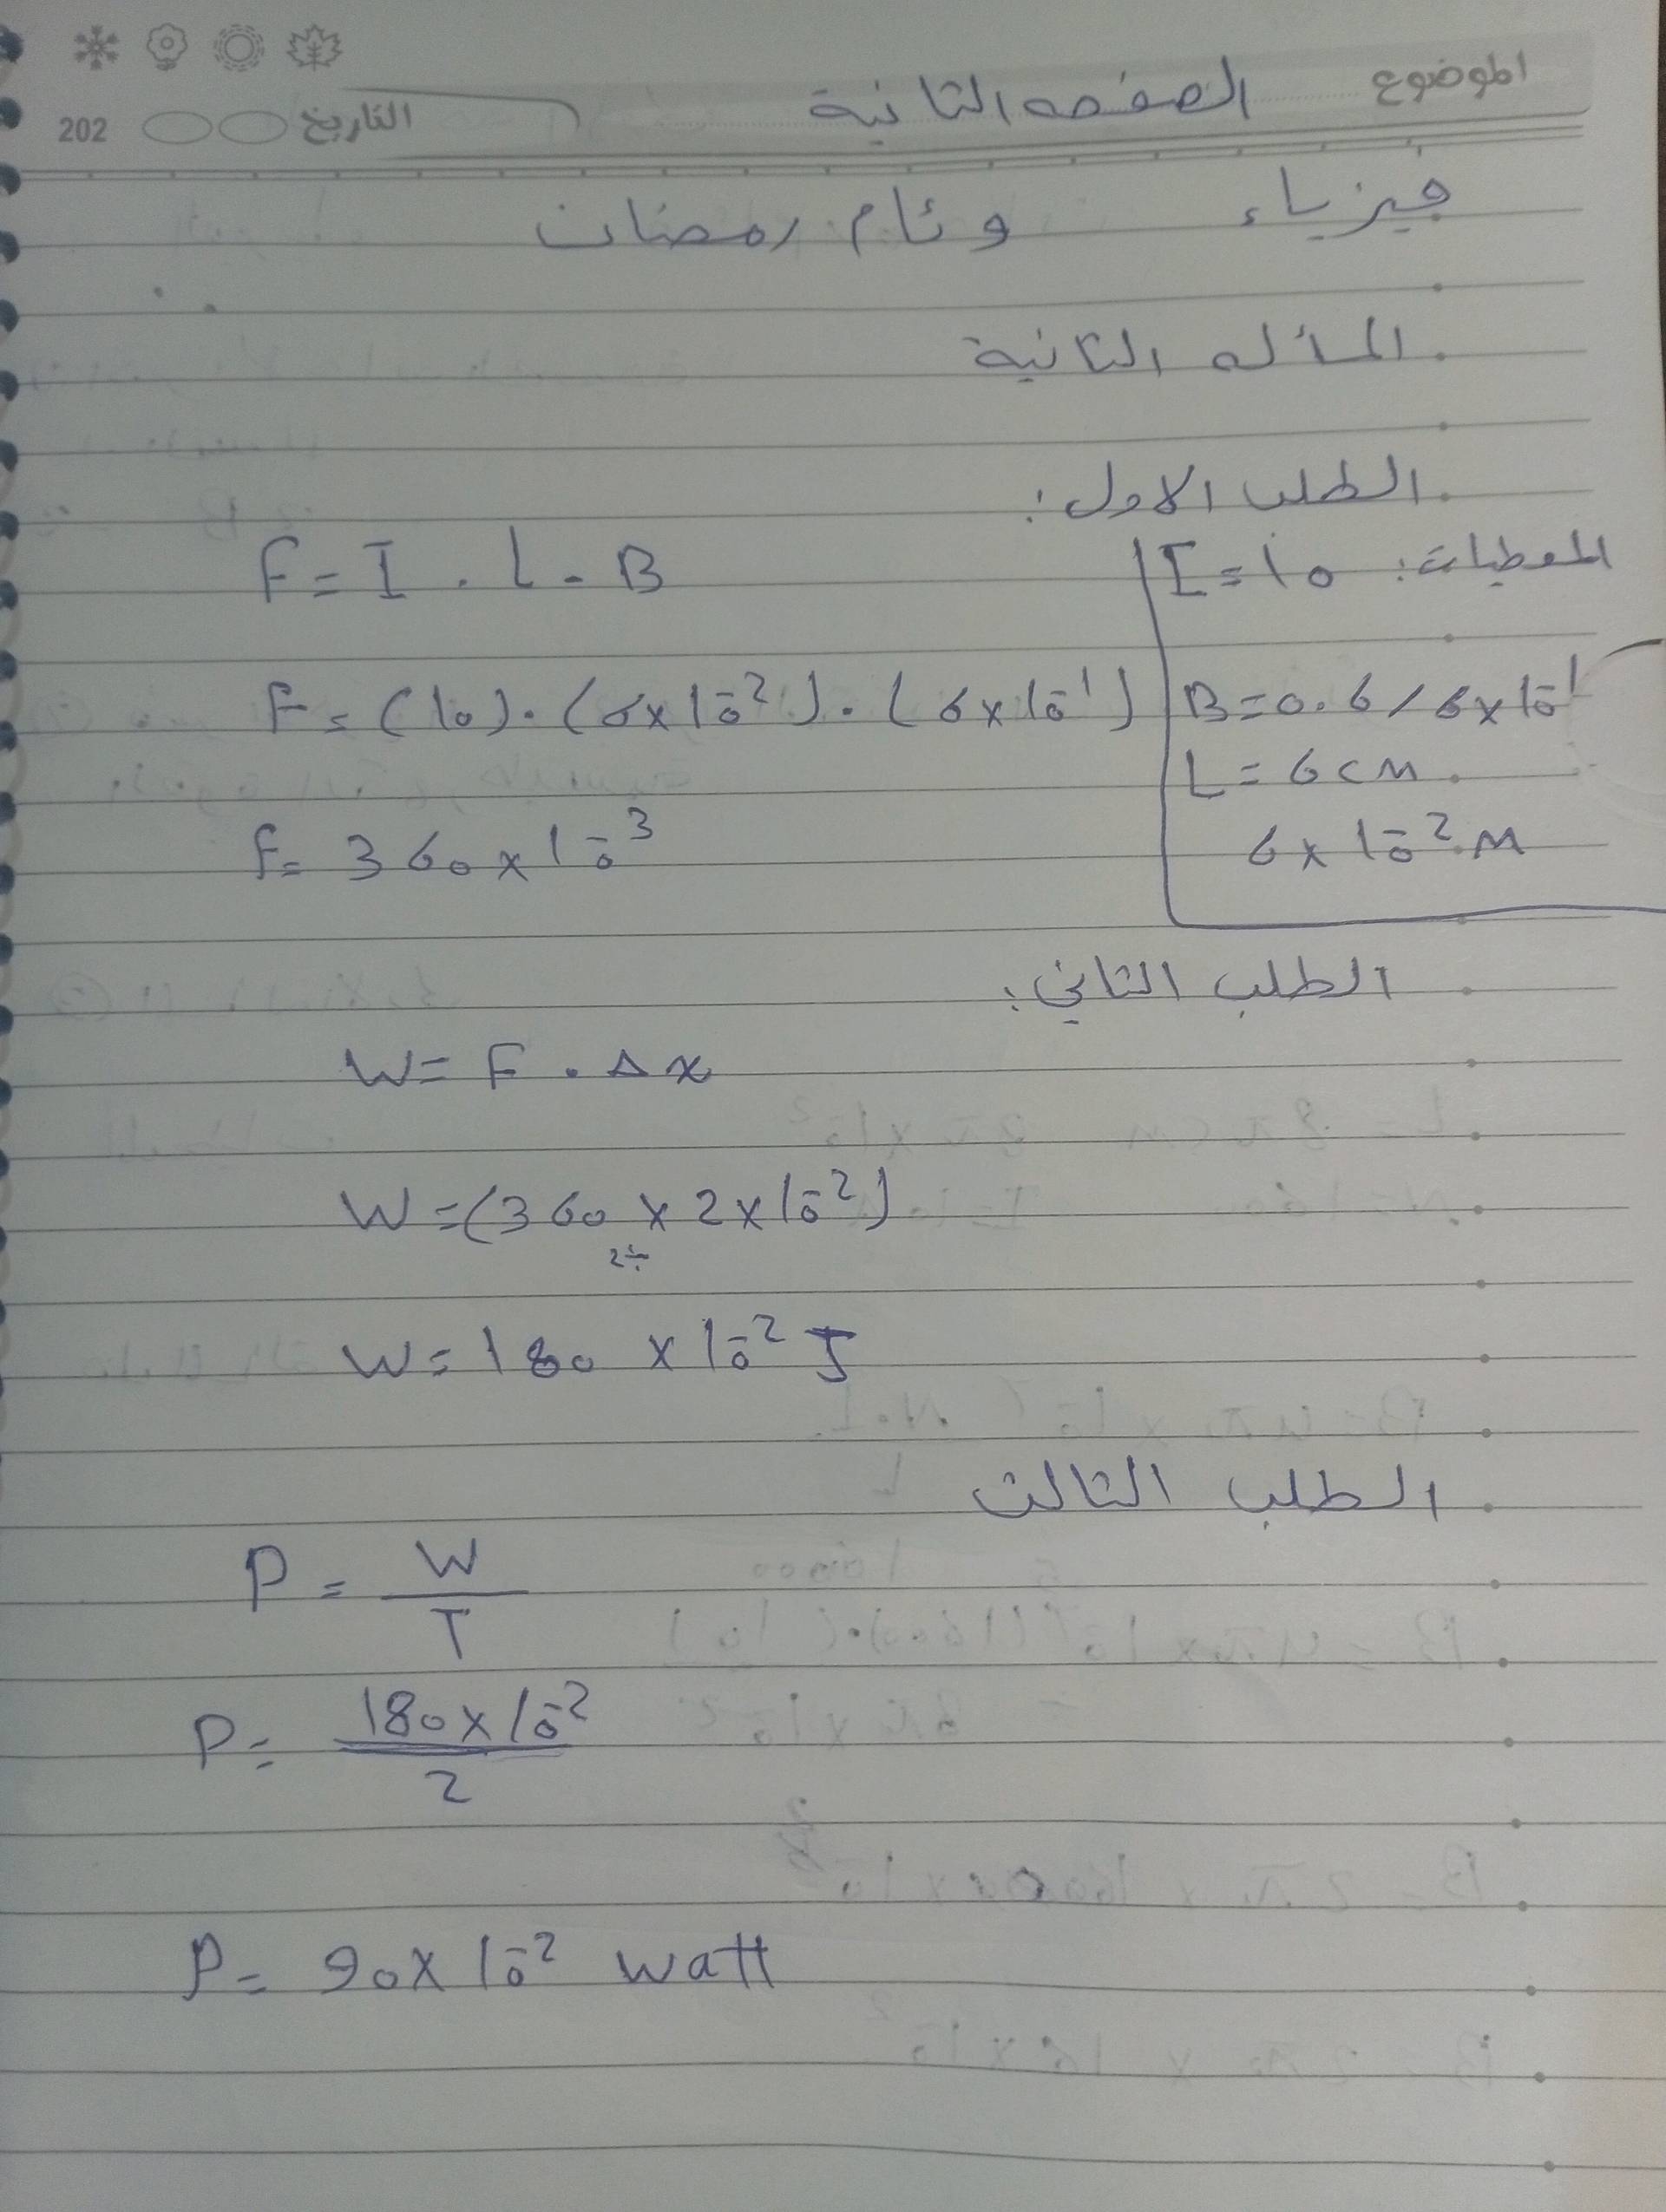 الموضوع الصفحه الثانية
التاريخ 202
فيزياء وئام رمضان
المسأله الثانية
الطلب الاول:
المعطيات: I = 10
F = I . L . B
B = 0.6 / 6x10⁻¹
F = (10) . (6x10⁻²) . (6x10⁻¹)
L = 6 cm
6x10⁻² M
F = 360 x 10⁻³
الطلب الثاني:
W = F . Δx
W = (360 x 2 x 10⁻²)
2÷
W = 180 x 10⁻² J
الطلب الثالث
P = W / T
P = 180 x 10⁻² / 2
P = 90 x 10⁻² watt